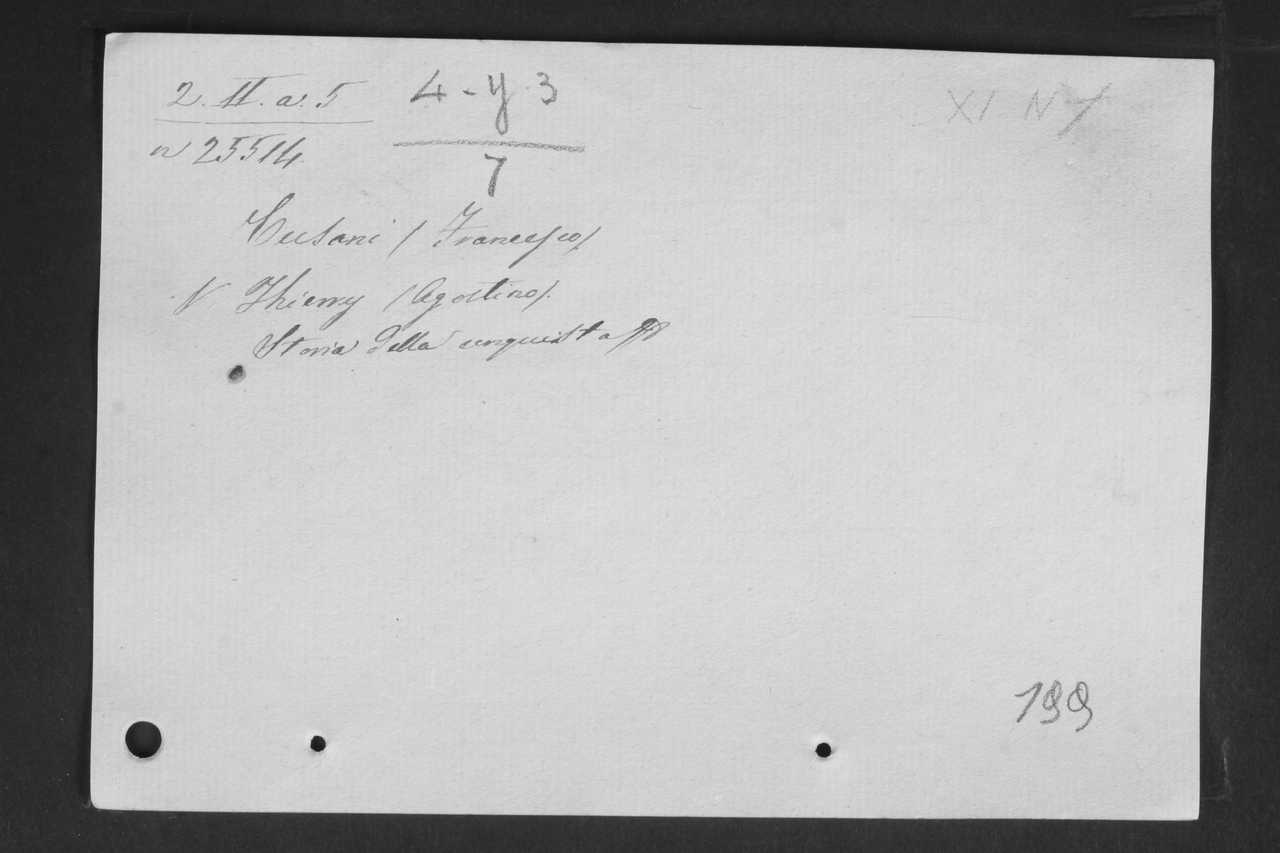 2. II. a. 5
n 25514
4 - y 3
7
XI N
Cusani / Francesco /
V Thierry / Agostino /.
Storia della conquista
199